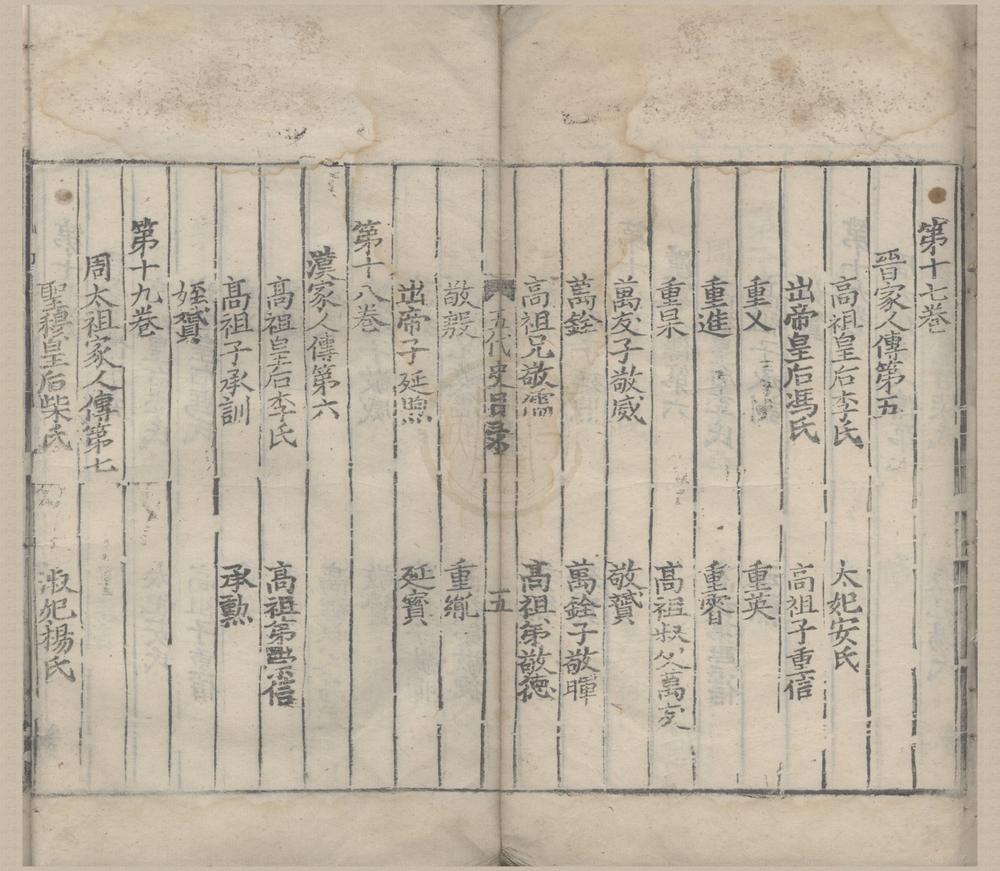 第十七卷
晋家人傳第五
高祖皇后李氏　太妃安氏
出帝皇后馮氏　高祖子重信
重乂　重英
重進　重睿
重杲　高祖叔父萬友
萬友子敬威　敬贇
萬銓　萬銓子敬暉
高祖兄敬儒　高祖弟敬德
五代史目录　五
敬殷　重胤
出帝子延煦　延寶
第十八卷
漢家人傳第六
高祖皇后李氏　高祖弟崇信
高祖子承訓　承勲
姪贇
第十九卷
周太祖家人傳第七
聖穆皇后柴氏　淑妃楊氏